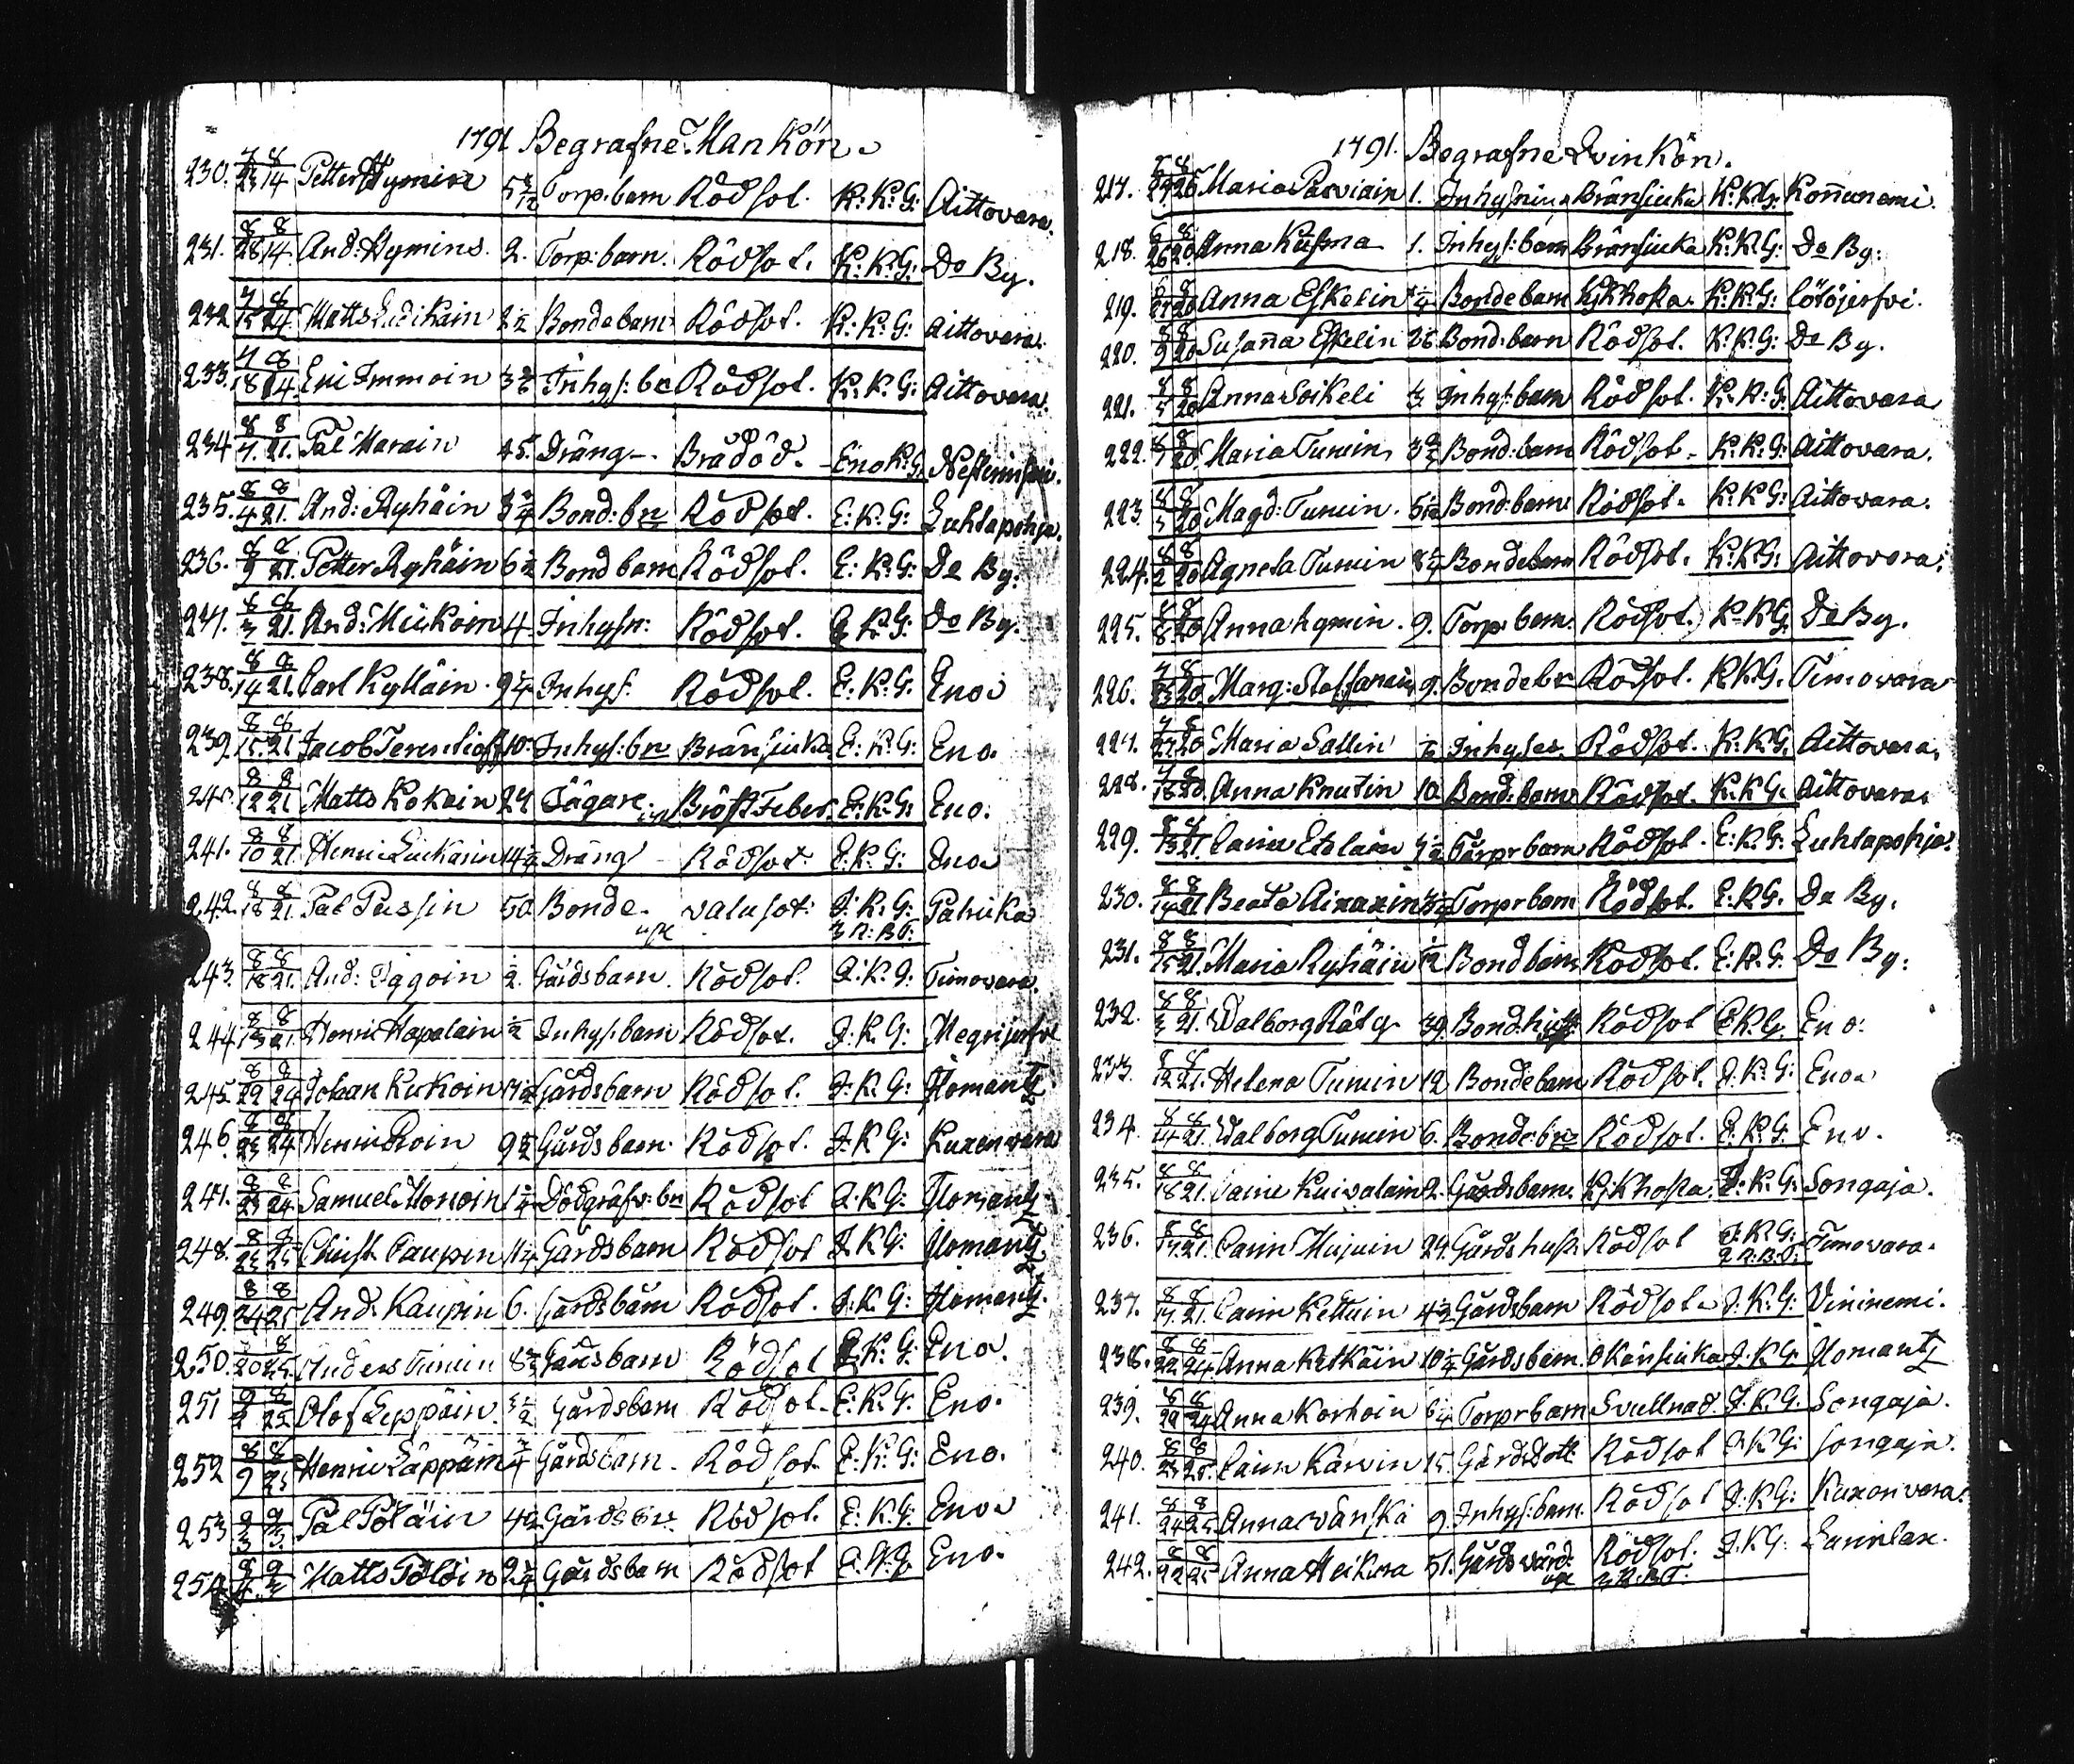 1791 Begrafne Mankön.
230. 7/23 8/14 Petter Hymine 5 Torp.barn Rödsot. K: K: G: Aittovara.
231. 8/28 8/14 And: Hymins. 2. Torp:barn. Rödsot. K: K: G: Do By.
232. 7/15 8/24 Matts Ludikain 2 1/2 Bondebarn Rödsot. K: K: G: Aittovara.
233. 7/18 8/14 Eric Immoin Inhys: bn Rödsot. K: K: G: Aittovara.
234 8/7. 8/21. Pål Marain 45. Dräng Brådöd. Eno K: G.
235. 8/4 8/21. And: Ryhäin Bond: bn Rödsot. E: K: G: Luhtapohja.
236. 8/9 8/21. Petter Ryhäin 6 1/2 Bond barn Rödsot. E: K: G: Do By:
237. 8/3 8/21. And: Miikoin 4 Inhysn: Rödsot. E K: G: Do By.
238. 8/14 8/21. Carl Kylläin 9 1/4 Inhys. Rödsot. E: K: G. Eno.
239. 8/15. 8/21 Jacob 10. Inhys: bn Bränsiuka E: K: G: Eno.
240. 8/12 8/21 Matts Kokoin 24 Jägare. Bröst Feber. E: K: G: Eno.
241. 8/10 8/21. Henric 14 1/2 Dräng Rödsot. E: K: G: Eno.
242. 8/18 8/21. Pål Pussin 50 Bonde. valusot: I: K: G: Patrika
243. 8/18 8/21. And: Iggoin 2. Gårdsbarn. Rödsot. I: K: G: Timovara.
244 8/13 8/21. Henric Hapalain 1/2 Inhys: barn Rödsot. I: K: G: Megrijerfvi
245. 8/22 8/24 Johan Kukoin Gårdsbarn Rödsot. I: K: G: Ilomantz
246. 8/23 8/24 Henric Proin 9 1/2 Gårdsbarn Rödsot. I: K G: Kuxenvara
247. 8/23 8/24 Samuel Monoin Dödgräfv: bn Rödsot I: K G: Ilomantz
248. 8/23 8/25 Christ. Caupin 11 1/4 Gårdsbarn Rödsot I. K G: Ilomantz
249. 8/24 8/25 And: Kaupin 6. Gårdsbarn Rödsot. I: K: G: Ilomantz.
250. 8/20 8/25. Anders Timin 8 1/2 Gårdsbarn Rödsot E: K: G: Eno.
251 8/2 8/25 Olof Leppäin. 3 1/2 Gårdsbarn Rödsot. E: K: G: Eno.
252 8/9 8/25 Henric Läppäin 3/4 Gårdsbarn. Rödsot. E: K: G: Eno.
253 9/3 9/3. Pål Pöläin 4 1/2 Gårdsbn. Rödsot. E: K: G: Eno.
254 9/4. 9/3 Matts Pöläin 2 1/4 Gårdsbarn Rödsot E: K: G. Eno.
1791. Begrafne Qvinkön.
217. Maria Parviain 1. Inhysnin Bränsiuka K: K: G: Koñunemi.
218. 6/26 8/20 Anna Kuhma 1. Inhys: barn Bränsiuka K: K: G: Do By:
219. Anna Eskelin Bondebarn Kikhosta. K: K: G: Lötöjerfvi.
220. 8/9 8/20 Susaña Eskelin Bond.barn Rödsot. K: K: G: Do By.
221. 8/5 8/20 Anna Soikeli Inhys: barn Rödsot. K: K: G. Aittovara
222. 8/7 8/20 Maria Tumin Bond:barn Rödsot. K: K: G: Aittovara.
223. 8/5 8/20 Magd: Tumin. Bond:barn Rödsot. K: K G: Aittovara.
224. 8/2 8/20 Agneta Tumin Bondebarn Rödsot. K: K G: Aittovara.
225. 8/8 8/20 Anna Hymin. 9. Torp. barn. Rödsot. K: K G. Do By.
226. 7/23 8/20 Marg: Staffanain 9. Bondebn Rödsot. K: K: G. Timovara
227. 7/27 8/20 Maria Sallin Inhyses. Rödsot. K: K G. Aittovara.
228. 7/18 8/20 Anna Knutin 10 Bond: barn Rödsot. K: K G. Aittovara.
229. 8/13 8/21. Carin Etolain Torpr barn Rödsot. E: K: G: Luhtapohja.
230. 8/14 8/21 Beata Aixaxin Torpr barn Rödsot. E: K G. Do By.
231. 8/15 8/21. Maria Ryhäin Bond barn Rödsot. E: K: G. Do By:
232. 8/3 8/21. Walborg Räty 39. Bond.hust: Rödsot E K: G. Eno:
233. 8/12 8/21. Helena Tumin 12 Bondebarn Rödsot. E: K: G: Eno.
234 8/14 8/21. Walborg Tumin 6. Bonde bn Rödsot. E: K: G. Eno.
235. 8/18 8/21. Carin Kuivalain 2. Gårdsbarn. Kikhosta. I: K: G: Songaja.
236. 8/17 8/21. Carin Mujuin 29. Gårds hust: Rödsot I: K G: Timovara.
237. 8/17. 8/21. Carin Kettuin 4 1/2 Gårdsbarn Rödsot. I: K: G: Vininemi.
238. 8/22 8/24 Anna Ketkäin 10 1/2 Gårdsbarn. Okänsiuka I: K G. Ilomantz
239. 8/22 8/24 Anna Korhoin 6 1/4 Torpr barn Svullnad. I: K G: Songaja.
240. 8/23 8/25. Carin Karvin 15. Gårds dott Rödsot I: K G: Songaja.
241. 8/24 8/25 Anna Swänskä 9. Inhys: barn. Rödsot I: K G: Kuxonvara.
242. 8/22 8/25 Anna Heikura 51. Gårds värd: Rödsot. I: K G: